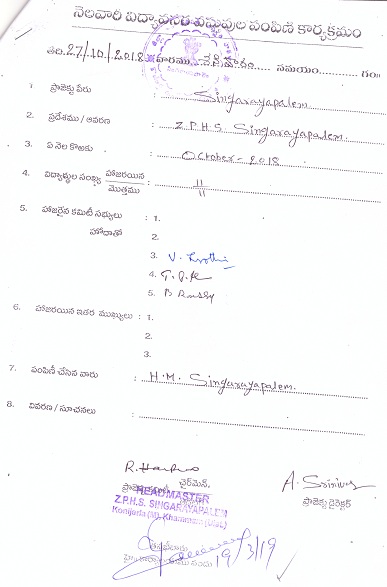 నెలవారి విద్యావసర వస్తువుల పంపిణి కార్యక్రమం
తేది. 27/10/2018 వారము సమయం............ గం॥
1 ప్రాజెక్టు పేరు : Singarayapalem
2. ప్రదేశము / ఆవరణ : Z.P.H.S. Singarayapalem.
3. ఏ నెల కొఱకు : October - 2018
4. విద్యార్థుల సంఖ్య హాజరయిన / మొత్తము : 11 / 11
5. హాజరైన కమిటీ సభ్యులు : 1.
హోదాతో 2.
3. V. Jyothi
4.
5. B Reddy
6. హాజరయిన ఇతర ముఖ్యులు : 1.
2.
3.
7. పంపిణీ చేసిన వారు : H.M. Singarayapalem.
8. వివరణ / సూచనలు :
ప్రాజెక్టు చైర్‌మెన్.
A. Srinivas
ప్రాజెక్టు డైరెక్టర్
HEAD MASTER
Z.P.H.S. SINGARAYAPALEM
Konijerla (M), Khammam (Dist.)
19/3/19